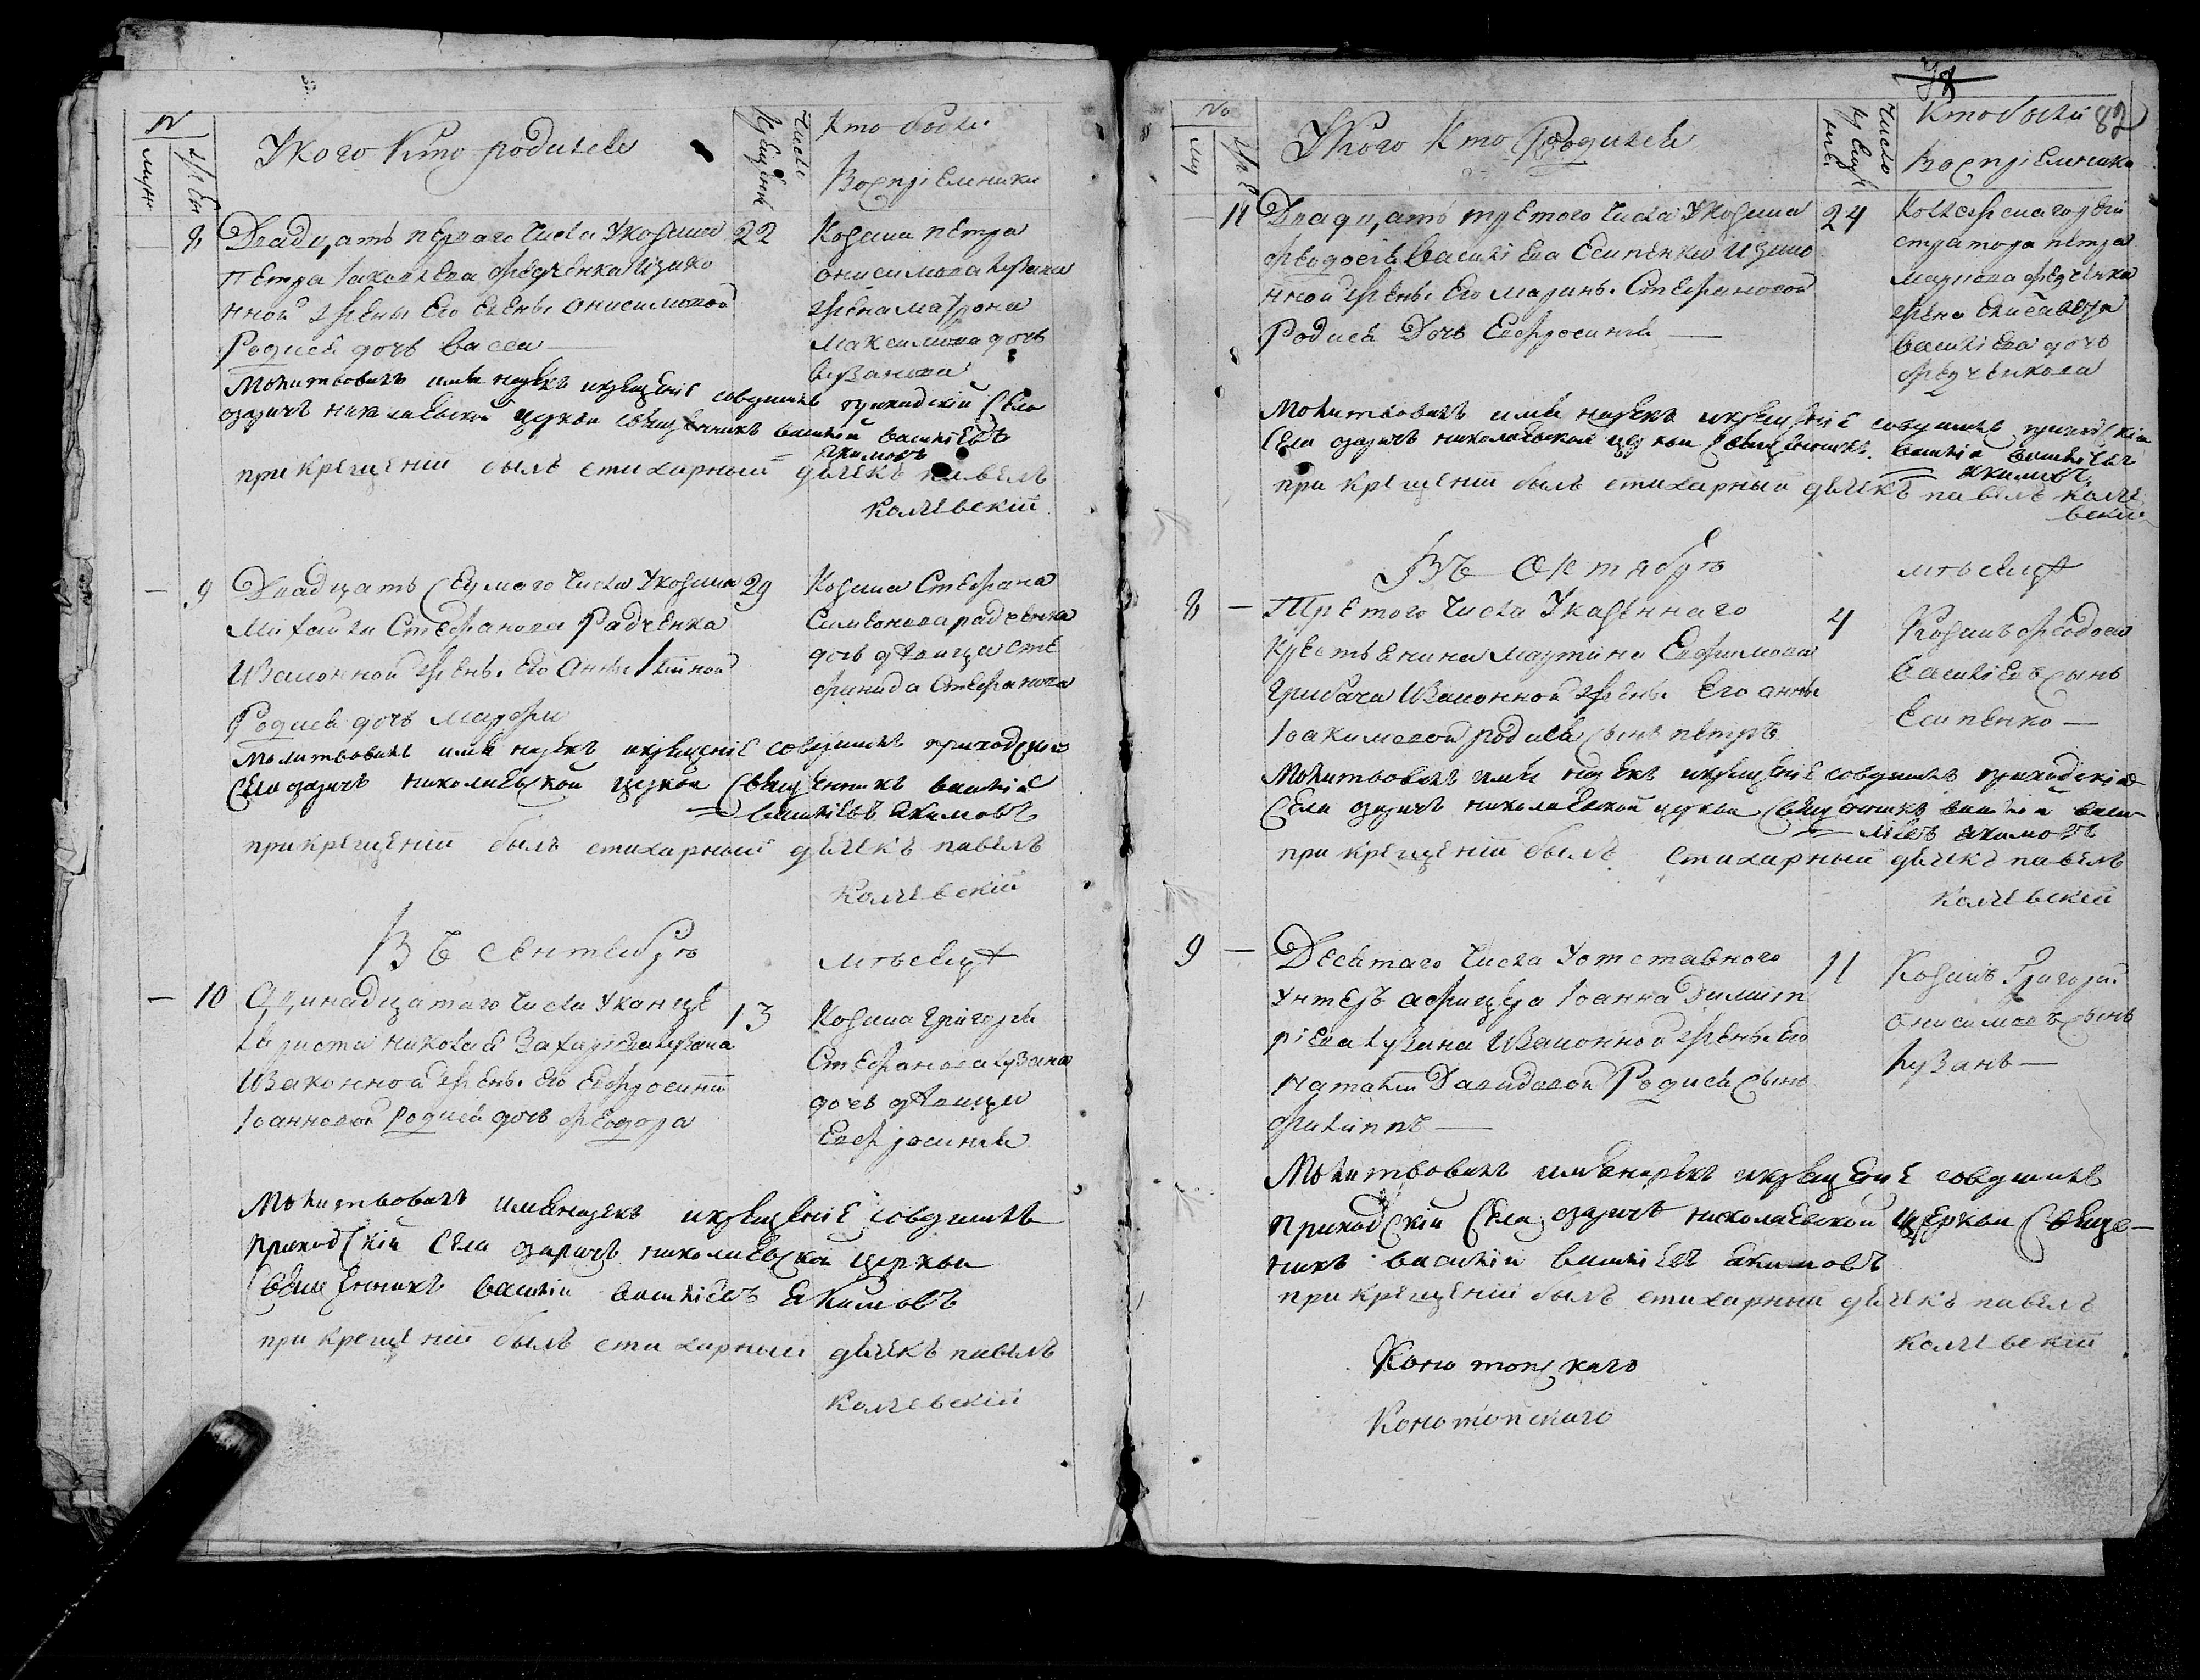 №
муж
жен
У кого кто родители
число крещения
кто были
Воспріемники
8
Двадцать перваго числа У козака
Петра Іаковлева Федченка изако
нной жены его елены онисимовой
Родися дочь васса
22
Козака петра
онисимова лузана
жена матрона
максимова дочь
лузанова
Молитвовалъ имя нарекъ икрещеніе совершилъ приходскій села
озаричъ николаевской церкви священникъ василій василіевъ
Екимовъ
при крещеніи былъ стихарный дьячекъ павелъ
калчевскій
9
Двадцать седмаго числа У козака
Михаила Стефанова Радченка
Изаконной жены его Анны
Родися дочь марфа
29
Козака Стефана
Симеонова радченка
дочь девица сте
фанида Стефанова
Молитвовалъ имя нарекъ икрещеніе совершилъ приходскій
Села озаричъ николаевской церкви священникъ василій
василіевъ Екимовъ
при крещеніи былъ стихарный дьячекъ павелъ
калчевскій
Въ сентябрѣ мѣсяцѣ
10
Одинадцатаго числа У канце
ляриста николая Захаріева лузана
Изаконной жены его Евфросиніи
Іоанновой родися дочь феодора
13
Козака Григорія
Стефанова лузана
дочь девица
Евфросинія
Молитвовалъ имя нарекъ икрещеніе совершилъ
приходскій Села озаричъ николаевской церкви
Священникъ василій василіевъ Екимовъ
при крещеніи былъ стихарный дьячекъ павелъ
калчевскій
82
№
муж
жен
У кого кто Родители
Число крещения
Кто были
Воспріемники
11
Двадцать третого числа У козака
феодосія василіева Есипенка Изако
нной жены его марины Стефановой
Родися Дочь Евфросинія
24
Коллежскаго реги
стратора петра
маркова федченка
жена елисавета
василіева дочь
федченкова
Молитвовалъ имя нарекъ икрещеніе совершилъ приходскій
Села озаричъ николаевской церкви священникъ василій василіевъ
Екимовъ
при крещеніи былъ стихарный дьячекъ павелъ калче
вскій
Въ Октябрѣ мѣсяцѣ
8
Третого числа У казеннаго
крестьянина мартина Евфимова
Грибача Изаконной жены его анны
Іоакимовой родися сынъ петръ
4
Козакъ феодосій
василіевъ сынъ
Есипенко
Молитвовалъ имя нарекъ икрещеніе совершилъ приходскій
Села озаричъ николаевской церкви священникъ василій васи
ліевъ Екимовъ
при крещеніи былъ стихарный дьячекъ павелъ
калчевскій
9
Десятаго числа У отставного
унтеръ афицера Іоанна Димит
ріева лузана Изаконной жены его
наталіи Давидовой Родися сынъ
филиппъ
11
Козакъ Григорій
Онисимовъ сынъ
лузанъ
Молитвовалъ имя нарекъ икрещеніе совершилъ
приходскій Села озаричъ николаевской церкви свяще
никъ василій василіевъ Екимовъ
при крещеніи былъ стихарный дьячекъ павелъ
калчевскій
Конотопскаго
Конотопскаго